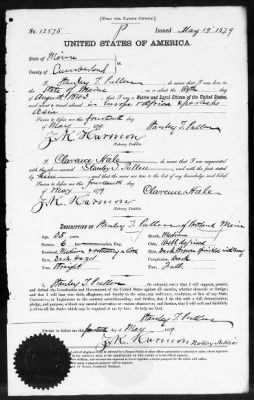 [FORM FOR NATIVE CITIZEN.]
No. 12575 Issued May 19th 1879
UNITED STATES OF AMERICA.
State of Maine
County of Cumberland
I, Stanley T. Pullen, do swear that I was born in the
State of Maine, on or about the
day of August 1843; that I am a Native and Loyal Citizen of the United States,
and about to travel abroad in Europe & Africa & perhaps
Asia
Sworn to before me this fourteenth day
of May 1879 Stanley T. Pullen
Z. K. Harmon
Notary Public.
I, Clarence Hale, do swear that I am acquainted with
the above-named Stanley T. Pullen and with the facts above stated
by him, and that the same are true to the best of my knowledge and belief.
Sworn to before me this fourteenth day
of May 1879 Clarence Hale
Z. K. Harmon
Notary Public.
DESCRIPTION OF Stanley T. Pullen of Portland Maine
Age, 35 years
Stature, 6 Eng.
Mouth, Medium
Chin, Well defined
Hair, Dark Brown
Eyes, Dark Hazel
Complexion, Dark
Nose, Straight
Face, Full
I, Stanley T. Pullen, do solemnly swear that I will support, protect,
and defend the Constitution and Government of the United States against all enemies, whether domestic or foreign;
and that I will bear true faith, allegiance, and loyalty to the same, any ordinance, resolution, or law of any State,
Convention, or Legislature to the contrary notwithstanding; and further, that I do this with a full determination,
pledge, and purpose, without any mental reservation or evasion whatsoever; and further, that I will well and faithfully
perform all the duties which may be required of me by law: So help me God.
Stanley T. Pullen
Sworn to before me this fourteenth day of May 1879
Z. K. Harmon
Notary Public